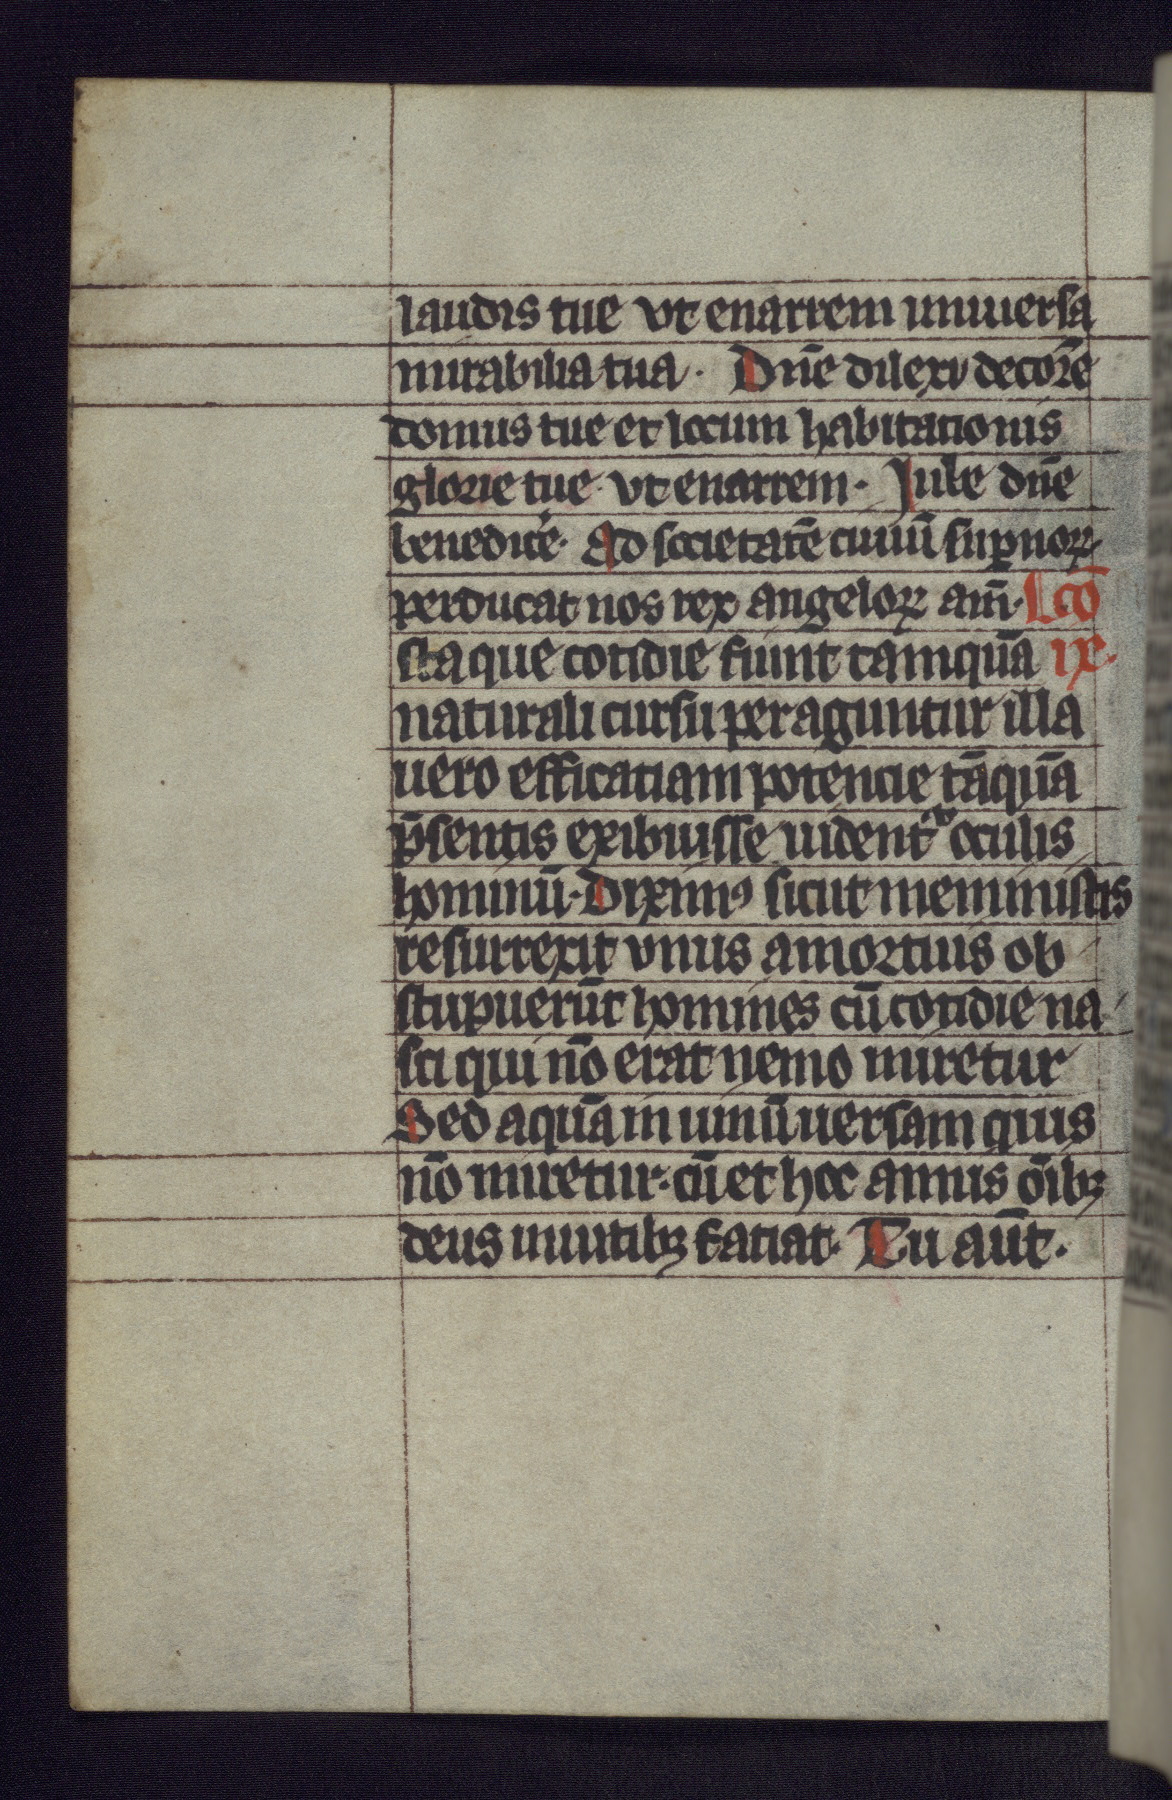 laudis tue vt enarrem uniuersa
mirabilia tua. Dn̄e dilexi decorē
domus tue et locum habitationis
glorie tue vt enarrem. Iube dn̄e
benedicē. Ad societatē ciuiū suꝑnoꝝ
perducat nos rex angeloꝝ am̄. Lc̄o
Ista que cotidie fiunt tamquā ix.
naturali cursu peraguntur illa
uero efficatiam potencie tāquā
p̄sentis exibuisse uidentᷣ oculis
hominū. Diximꝰ sicut meministis
resurrexit vnus amortuis ob
stupuerūt homines cū cotidie na
sci qui nō erat nemo miretur
Sed aquā in uinū uersam quis
nō miretur. cū et hoc annis ōibꝫ
deus in uitibꝫ fatiat. Tu aūt.